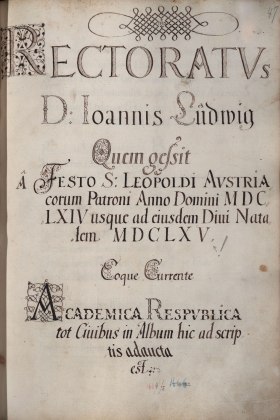 RECTORATVs
D: Ioannis Ludwig
Quem gessit
â FESTO S: LEOPOLDI AVSTRIA
corum Patroni Anno Domini MDC
LXIV usque ad eiusdem Divi Nata
lem MDCLXV.
Eoque Currente
ACADEMICA RESPVBLICA
tot Civibus in Album hic ad scrip
tis adaucta
est